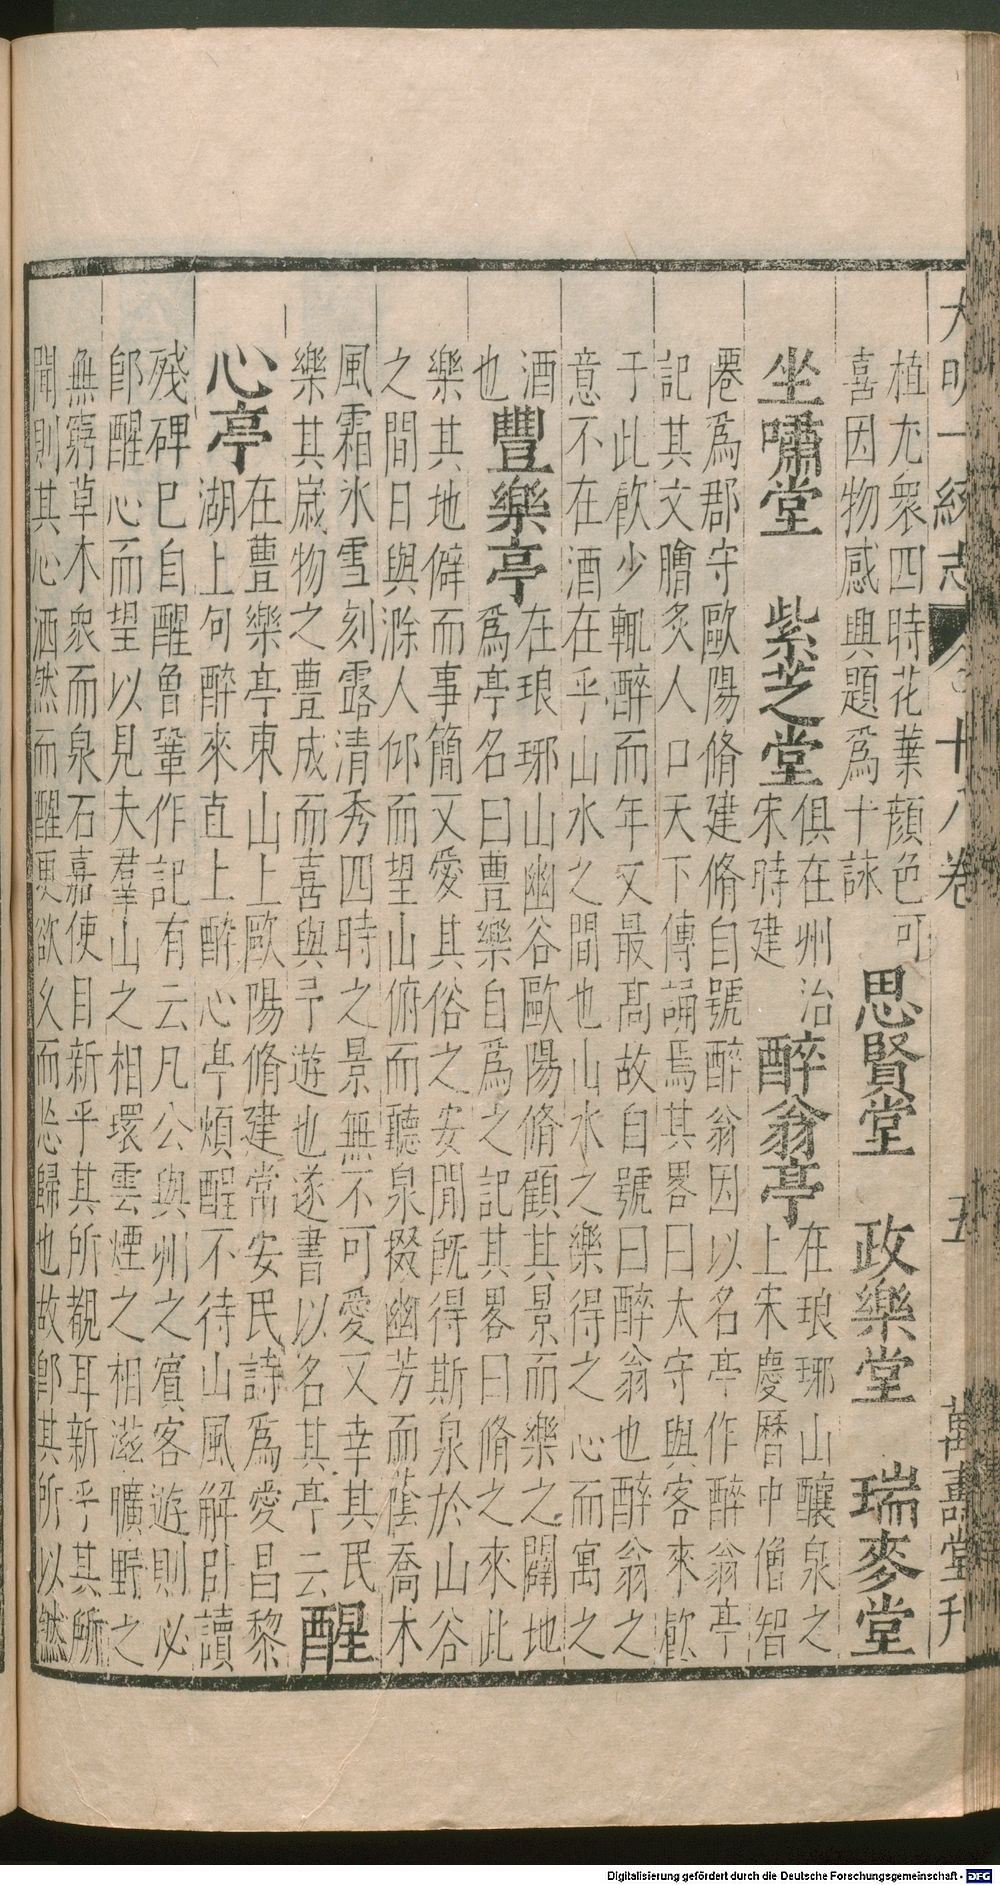 大明一統志 十八卷 五 萬壽堂刊
植尢衆四時花葉顏色可
喜因物感興題爲十詠
思賢堂 政樂堂 瑞麥堂
坐嘯堂 紫芝堂
俱在州治
宋時建
醉翁亭
在琅琊山釀泉之
上宋慶曆中僧智
僊爲郡守歐陽脩建脩自號醉翁因以名亭作醉翁亭
記其文膾炙人口天下傳誦焉其畧曰太守與客來飮
于此飮少輒醉而年又最髙故自號曰醉翁也醉翁之
意不在酒在乎山水之間也山水之樂得之心而寓之
酒
也
豐樂亭
在琅琊山幽谷歐陽脩顧其景而樂之闢地
爲亭名曰豊樂自爲之記其畧曰脩之來此
樂其地僻而事簡又愛其俗之安閒旣得斯泉於山谷
之間日與滁人仰而望山俯而聽泉掇幽芳而蔭喬木
風霜氷雪刻露清秀四時之景無不可愛又幸其民
樂其歲物之豊成而喜與予遊也遂書以名其亭云
醒
心亭
在豊樂亭東山上歐陽脩建常安民詩爲愛昌黎
湖上句醉來直上醉心亭煩酲不待山風解卧讀
殘碑巳自醒曾鞏作記有云凡公與州之賓客遊則必
卽醒心而望以見夫羣山之相環雲煙之相滋曠野之
無窮草木衆而泉石嘉使目新乎其所覩耳新乎其所
聞則其心洒然而醒更欲久而忘歸也故卽其所以然
Digitalisierung gefördert durch die Deutsche Forschungsgemeinschaft - DFG